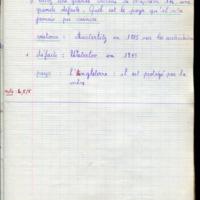 grande défaite. Quel est le pays qu'il n'a
jamais pu vaincre
victoire : Austerlitz en 1805 sur les autrichiens
défaite : Waterloo en 1815
pays : l'Angleterre : il est protégé par la
mer